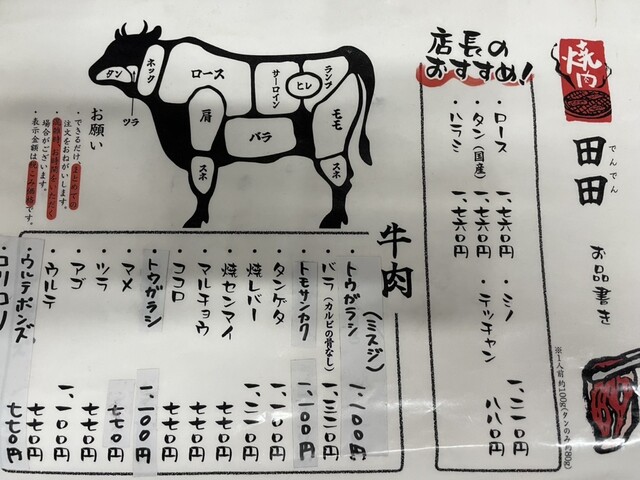 焼肉
でんでん
田田
お品書き
※1人前 約100g(タンのみ約80g)
店長の
おすすめ!
・ロース 一、七六〇円
・タン(国産) 一、七六〇円
・ハラミ 一、七六〇円
・ミノ 一、二一〇円
・テッチャン 八八〇円
タン
ツラ
ネック
ロース
肩
サーロイン
ヒレ
ランプ
バラ
モモ
スネ
スネ
お願い
・できるだけ、まとめての
注文をおねがいします。
場合がございます。
・表示金額は税込み価格です。
牛肉
・トウガラシ(ミスジ) 一、一〇〇円
・バラ(カルビの骨なし) 一、三二〇円
・トモサンカク 一、一〇〇円
・タンゲタ 一、二一〇円
・焼レバー 一、二一〇円
・焼センマイ 七七〇円
・マルチョウ 七七〇円
・ココロ 七七〇円
・トウガラシ 一、一〇〇円
・マメ 七七〇円
・ツラ 七七〇円
・アゴ 一、一〇〇円
・ウルテ 七七〇円
・ウルテポンズ 七七〇円
・コリコリ